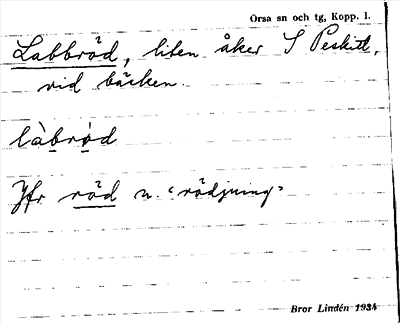 Orsa sn och tg, Kopp. l.
Labbröd, liten åker S Peskitt,
vid bäcken.
làbrǿd
Jfr röd n. 'rödjning'
Bror Lindén 1934